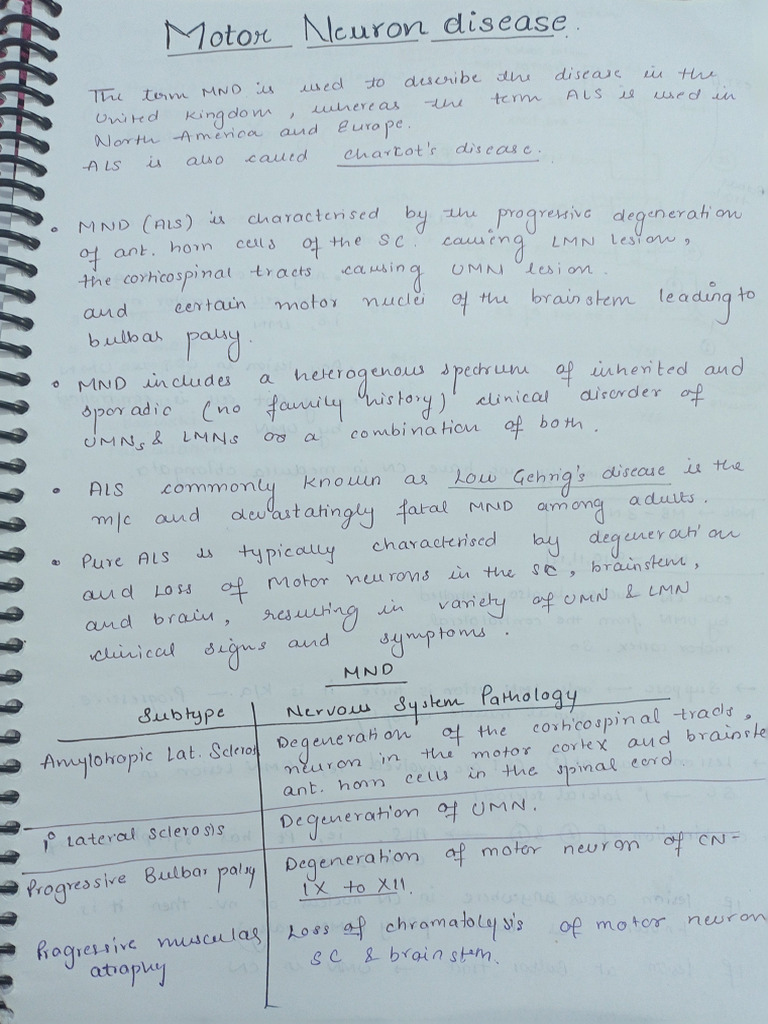 Motor Neuron disease.
The term MND is used to describe the disease in the
United Kingdom, whereas the term ALS is used in
North America and Europe.
ALS is also called charcot's disease.
• MND (ALS) is characterised by the progressive degeneration
of ant. horn cells of the SC. causing LMN lesion,
the corticospinal tracts causing UMN lesion.
and certain motor nuclei of the brainstem leading to
bulbar palsy.
• MND includes a heterogenous spectrum of inherited and
sporadic (no family history) clinical disorder of
UMNs & LMNs or a combination of both.
• ALS commonly known as Low Gehrig's disease is the
m/c and devastatingly fatal MND among adults.
• Pure ALS is typically characterised by degeneration
and Loss of Motor neurons in the SC, brainstem,
and brain, resulting in variety of UMN & LMN
clinical signs and symptoms.
MND
Subtype Nervous System Pathology
Amylotropic Lat. Scleros Degeneration of the corticospinal tracts,
neuron in the motor cortex and brainste
ant. horn cells in the spinal cord
1° Lateral sclerosis Degeneration of UMN.
Progressive Bulbar palsy Degeneration of motor neuron of CN-
IX to XII.
Progressive muscular Loss of chromatolysis of motor neuron
atraphy SC & brainstem.